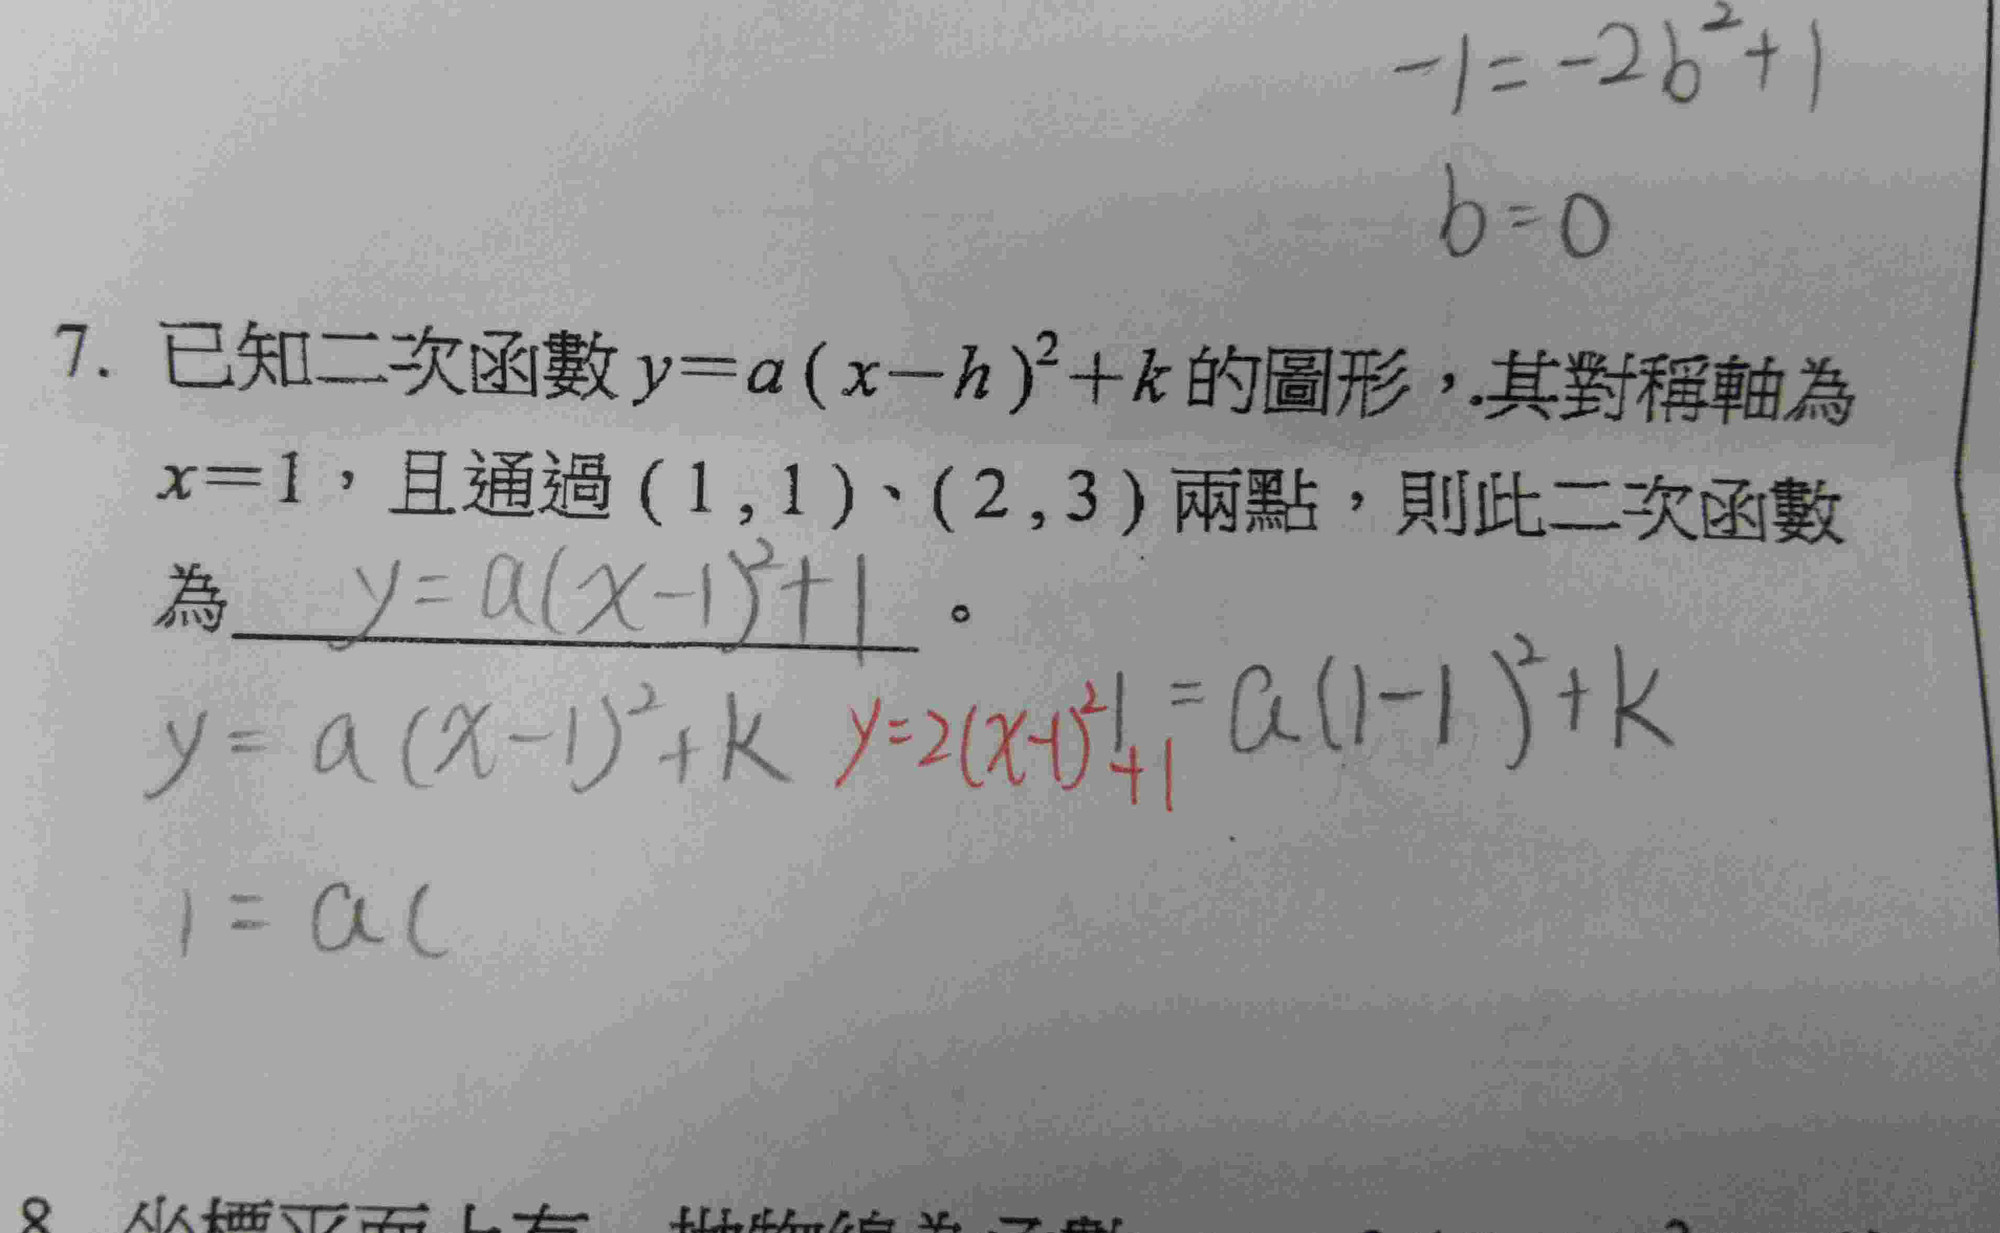 -1=-2b²+1
b=0
7. 已知二次函數 y=a(x-h)²+k 的圖形，其對稱軸為
x=1，且通過(1,1)、(2,3)兩點，則此二次函數
為 y=a(x-1)²+1 。
y=a(x-1)²+k y=2(x-1)²+1 1=a(1-1)²+k
1=a(
8